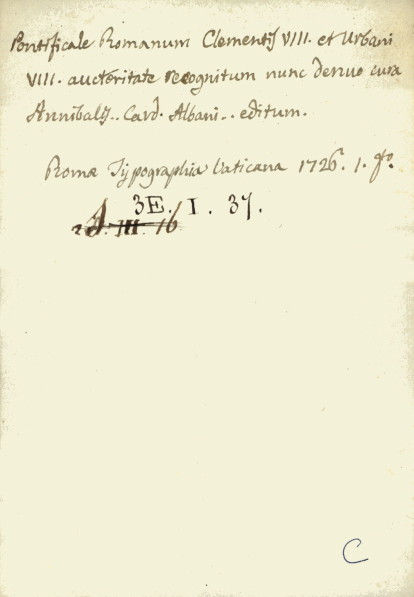 Pontificale Romanum Clementis VIII. et Urbani
VIII. auctoritate recognitum nunc denuo cura
Annibalis.. Card. Albani.. editum.
Romæ Typographia Vaticana 1726. 1. 4to.
3E. I. 37.
A. III. 16
C